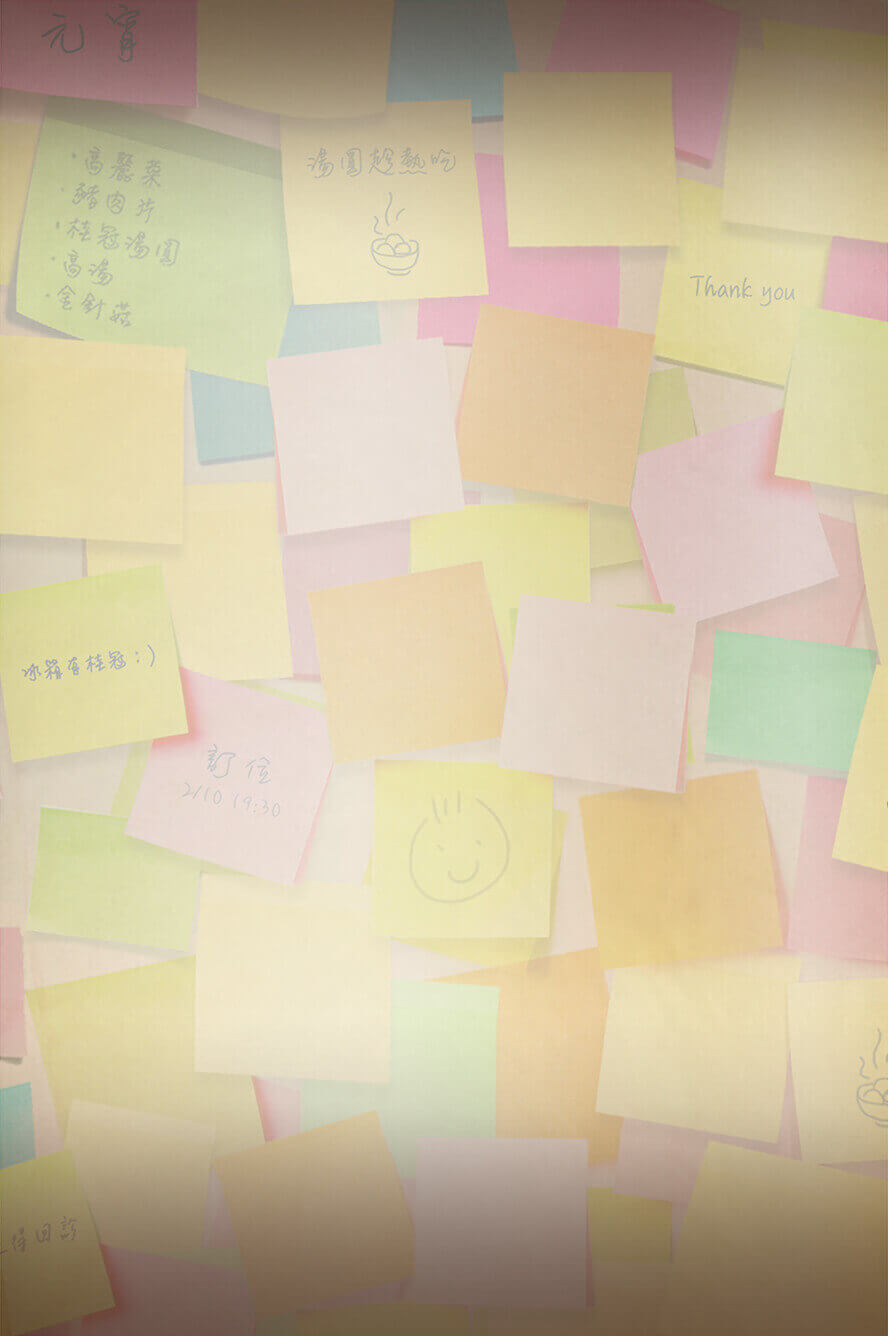 元宵
・高麗菜
・豬肉片
・桂冠湯圓
・高湯
・金針菇
湯圓趁熱吃
Thank you
冰箱有桂冠:)
訂位
2/10 19:30
得回診